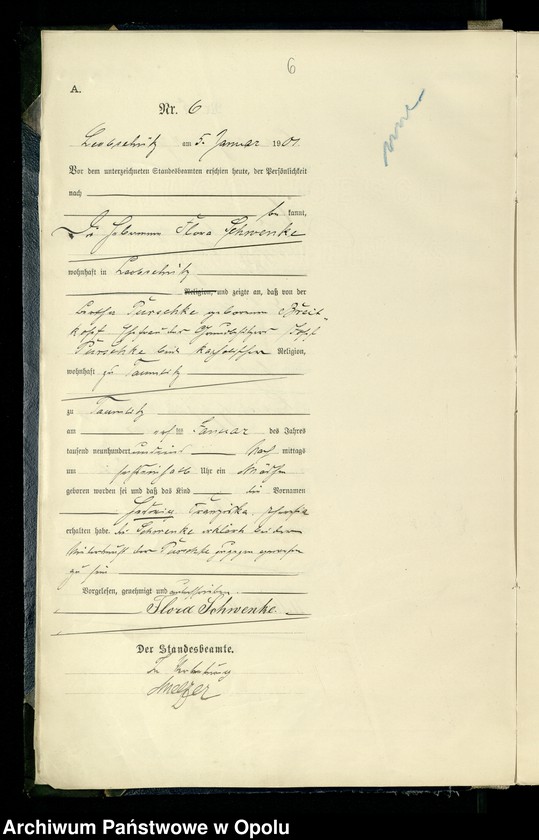 6
A.
Nr. 6
Leobschütz am 5. Januar 1901
Vor dem unterzeichneten Standesbeamten erschien heute, der Persönlichkeit
nach
be kannt,
Die Hebamme Flora Schwenke
wohnhaft in Leobschütz
Religion, und zeigte an, daß von der
Bertha Purschke geborenen Breit-
kopf Ehefrau des
Purschke beide katholischer Religion,
wohnhaft zu Taumlitz
zu Taumlitz
am ersten Januar des Jahres
tausend neunhundert und eins Nach mittags
um Uhr ein Mädchen
geboren worden sei und daß das Kind die Vornamen
Hedwig Franziska
erhalten habe. Die Schwenke erklärte bei der
Niederkunft der Purschke zugegen gewesen
zu sein
Vorgelesen, genehmigt und unterschrieben.
Flora Schwenke
Der Standesbeamte.
In Vertretung
Archiwum Państwowe w Opolu